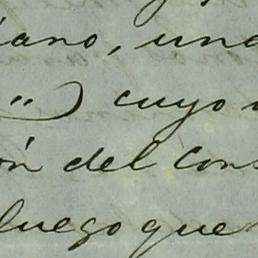 iano, una
") cuyo
ón del Cons
luego que